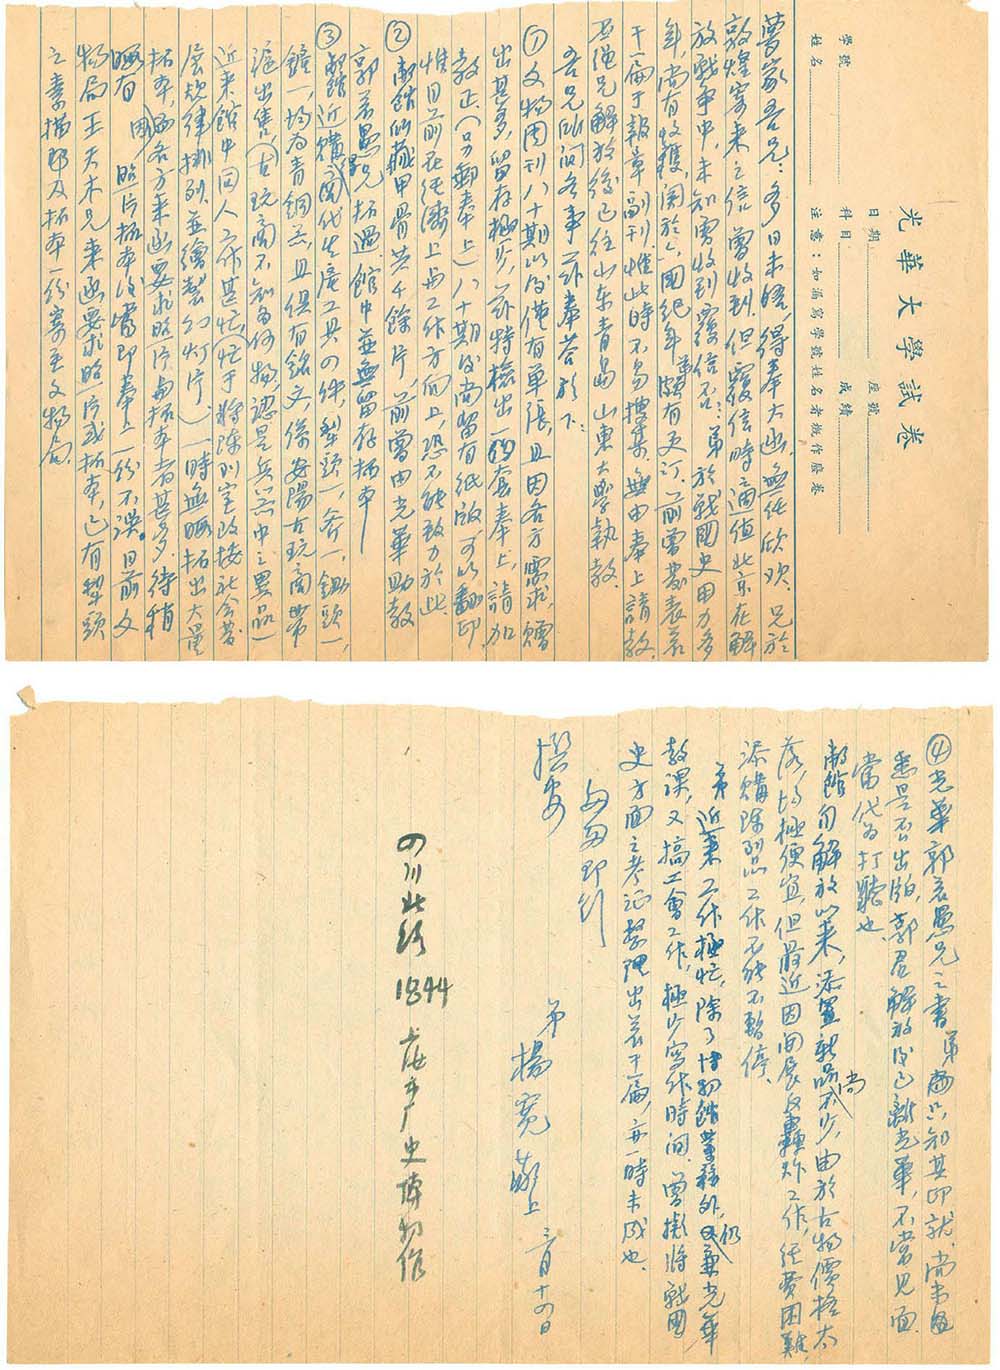 光華大學試卷
學號
姓名
日期
科目
座號
成績
注意：如漏寫學號姓名者概作廢卷
夢家吾兄：多日未晤，得奉大函，無任欣欢。兄於
敦煌寄来之信，曾收到。但覆信時適值北京在解
放戰争中，未知曾收到覆信不？弟於戰國史用力多
年，尚有收穫，関於六國紀年，頗有更订，前曾發表若
干篇于報章副刊，惟此時不易搜集，無由奉上請教。
丕繩兄解放後已往山东青島山東大學執教。
吾兄所问各事，兹奉答於下：
①文物周刊八十期以後僅有单張，且因各方需求，贈
出甚多，留存極少，兹特檢出一套奉上，請加
教正（另郵奉上）八十期後尚留有纸版，可以翻印，
惟目前在经濟上与工作方面上，恐不能致力於此。
②敝館所藏甲骨共千餘片，前曾由光華助教
郭若愚兄拓過，館中並無留存拓本
③敝館近購商代生産工具四件，犁頭一，斧一，鋤頭一，
鐮一，均為青銅器，且俱有銘文，係安陽古玩商带
滬出售（古玩商不知為何物，認是兵器中之異品）
近来館中同人工作甚忙（忙于将陈列室改按社会發
展规律排列，並繪製幻灯片）一時無暇拓出大量
拓本，因各方来函要求照片与拓本者甚多，待稍
暇有照片拓本後當即奉上一份不误。目前文
物局王天木兄来函要求照片或拓本，已有犁頭
之素描即及拓本一份寄至文物局。
④光華郭若愚兄之書，弟只知其印就，尚未
悉是否出版，郭君解放後已離光華，不常见面，
當代为打聽也。
敝館自解放以来，添置新品尚不少，由於古物價格大
落，均極便宜，但最近因间展反轟炸工作，经費困難，
添購陈列品工作不能不暫停。
弟近来工作極忙，除了博物館業務外，仍兼光華
教课，又搞工會工作，極少寫作時间，曾擬将戰國
史方面之考证整理出若干篇，亦一時未成也。
匆匆即引
撰安
弟楊寛敬上 三月十四日
四川北路1844上海市歷史博物館